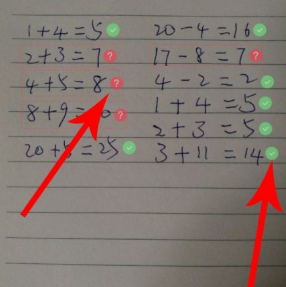 1+4=5
2+3=7
4+5=8
8+9=
20+5=25
20-4=16
17-8=7
4-2=2
1+4=5
2+3=5
3+11=14